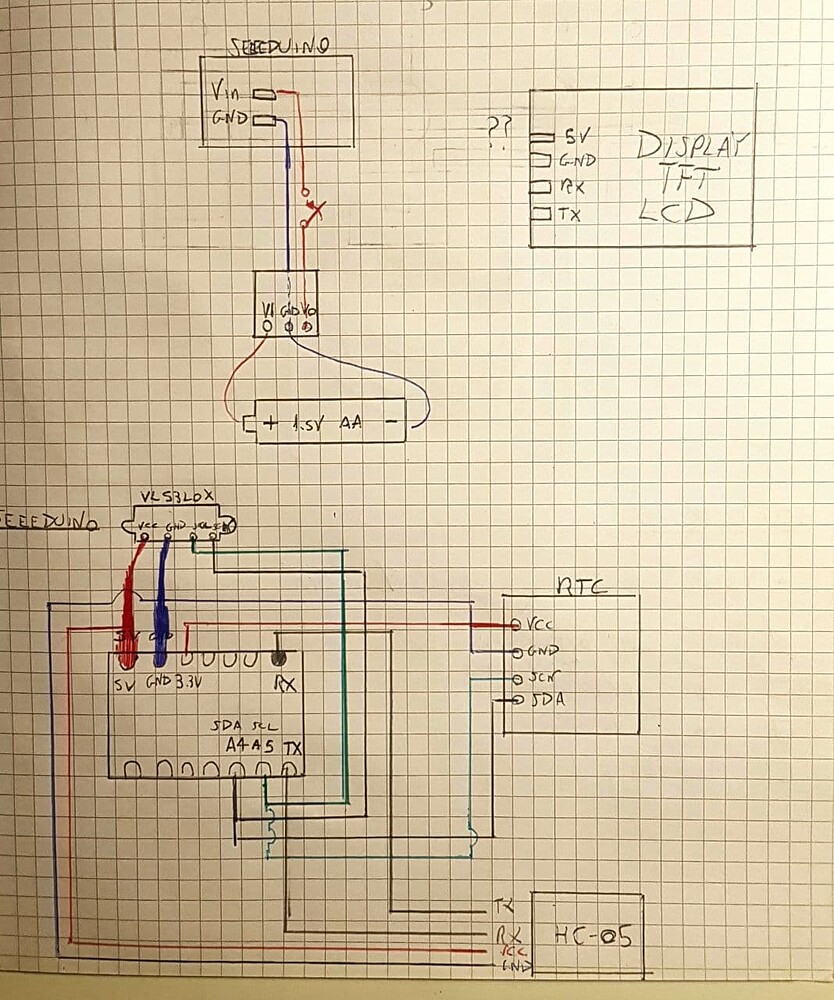 SEEEDUINO
Vin
GND
??
5V
GND
RX
TX
DISPLAY
TFT
LCD
VI GND VO
+ 1.5V AA -
VL53L0X
SEEEDUINO
VCC GND SCL SDA
RTC
VCC
GND
SCK
SDA
5V GND 3.3V RX
SDA SCL
A4 A5 TX
TX
RX
VCC
GND
HC-05